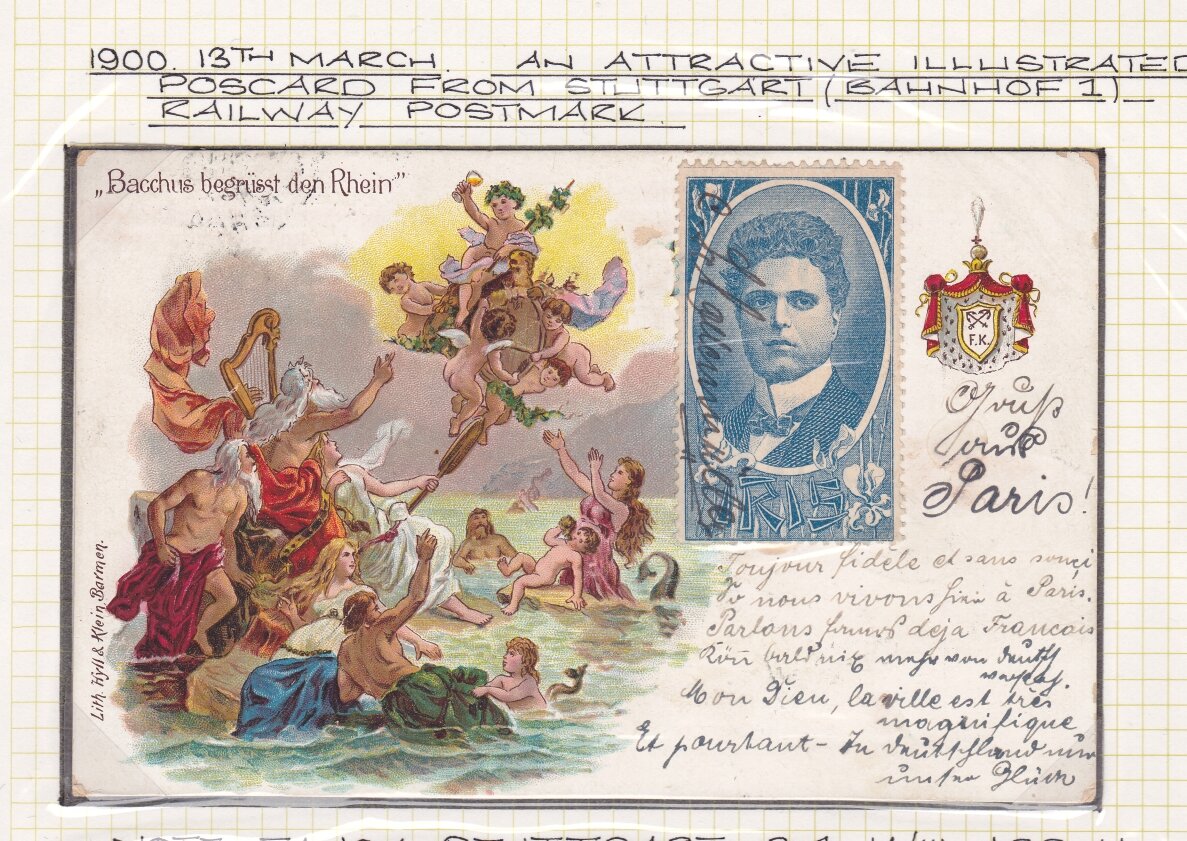 1900. 13TH MARCH. AN ATTRACTIVE ILLUSTRATED
POSCARD FROM STUTTGART (BAHNHOF 1)
RAILWAY POSTMARK.
„Bacchus begrüsst den Rhein"
F.K.
Gruß
aus
Paris!
PARIS
Toujour fidèle et sans souci
So nous vivons hier à Paris.
Parlons deja Francais
bald nix mehr von deutsch
Mon Dieu, la ville est très
magnifique
Et pourtant - In Deutschland nur
unser Glück
Lith. Kyll & Klein, Barmen.